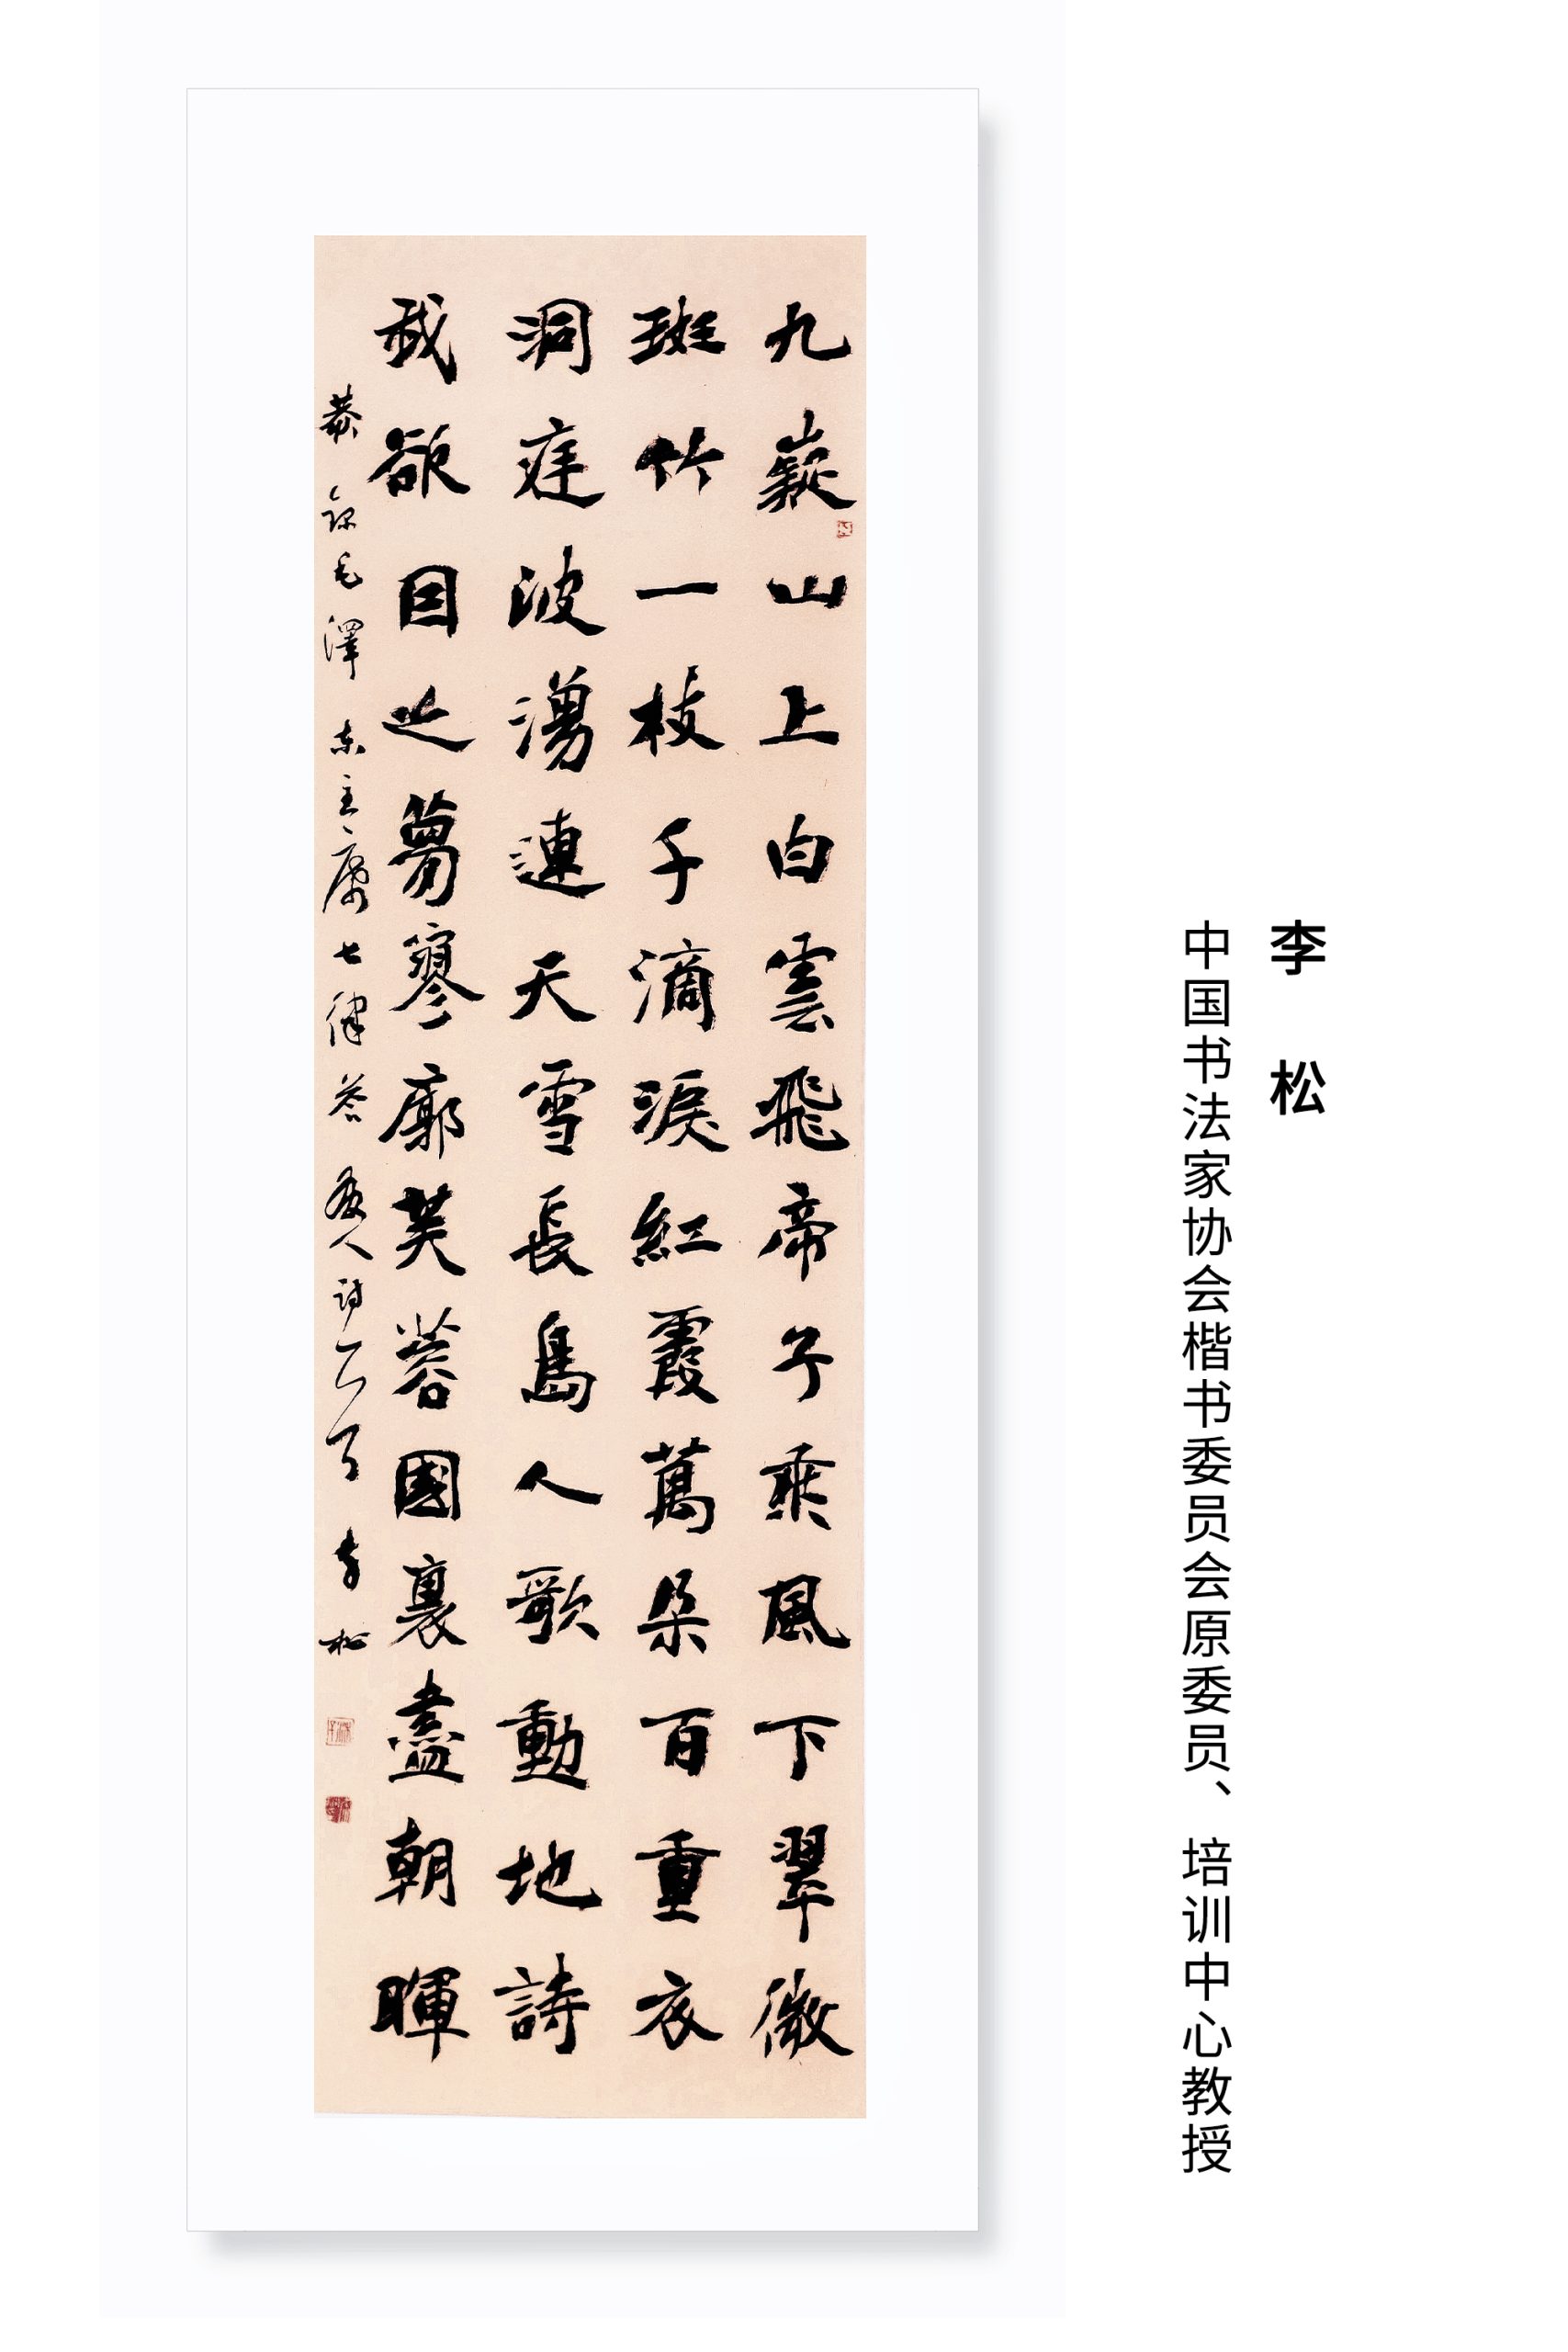 九嶷山上白雲飛帝子乘風下翠微
斑竹一枝千滴淚紅霞萬朵百重衣
洞庭波湧連天雪長島人歌動地詩
我欲因之夢寥廓芙蓉國裏盡朝暉
恭錄毛澤東主席七律答友人詩一首 李松
李松
中国书法家协会楷书委员会原委员、培训中心教授